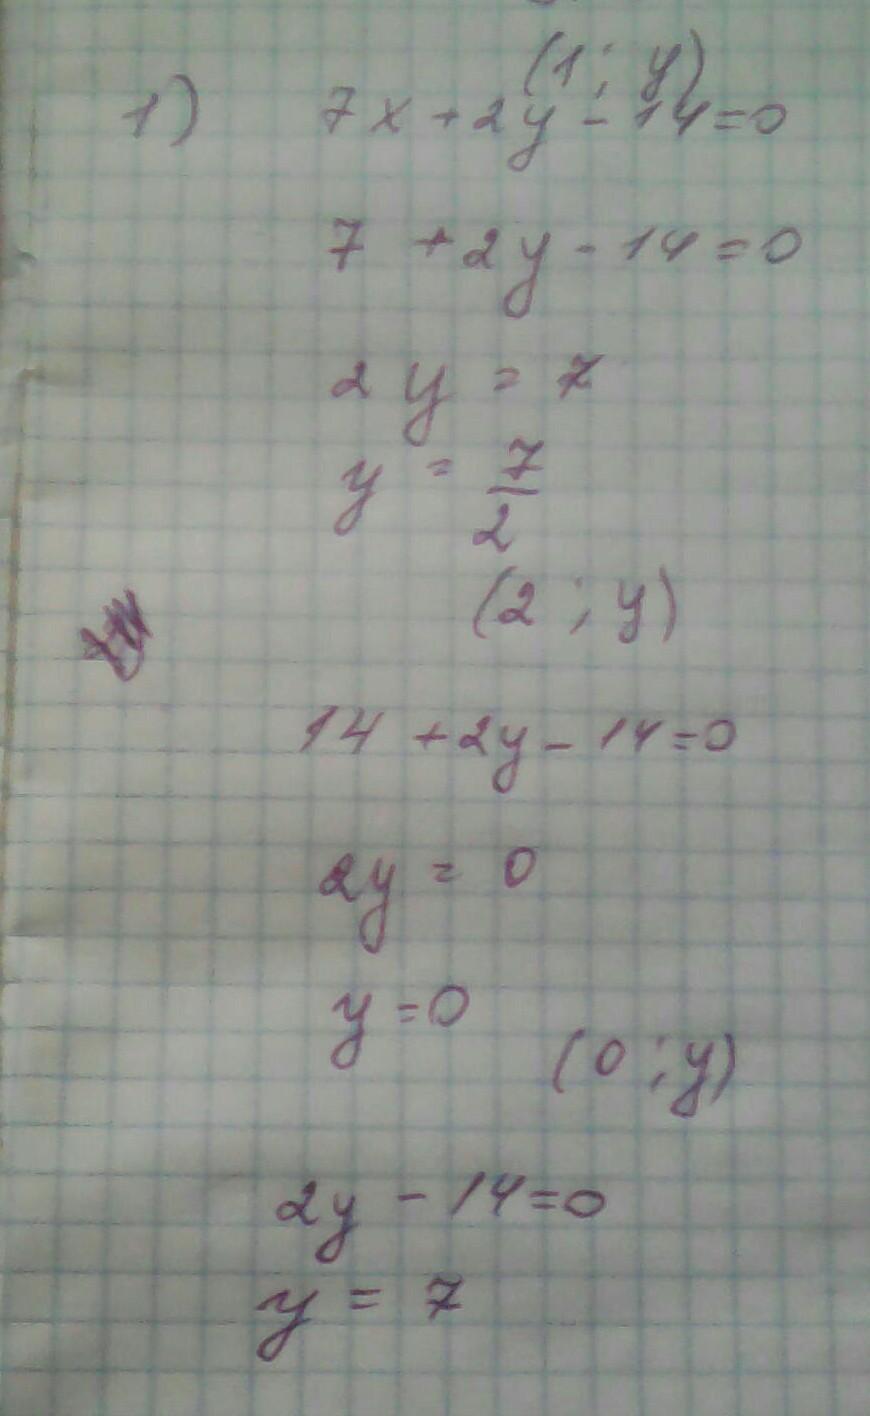 (1; y)
1) 7x + 2y - 14 = 0
7 + 2y - 14 = 0
2y = 7
y = 7/2
(2; y)
14 + 2y - 14 = 0
2y = 0
y = 0
(0; y)
2y - 14 = 0
y = 7